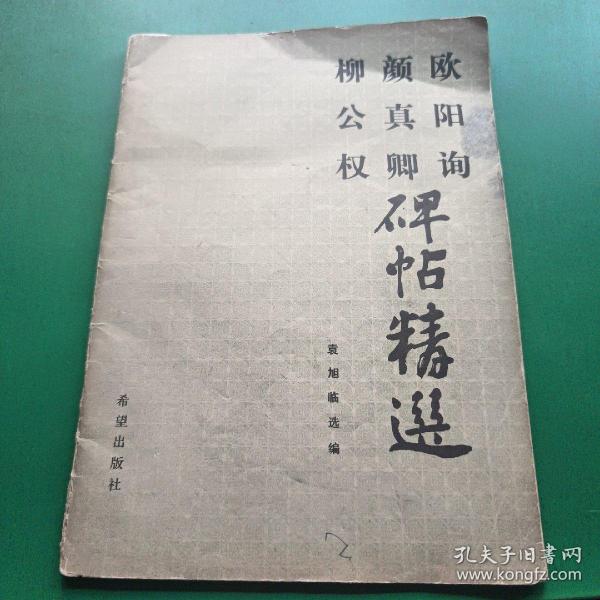 欧阳询
颜真卿
柳公权
碑帖精選
袁旭临选编
希望出版社
2
孔夫子旧书网
www.kongfz.com